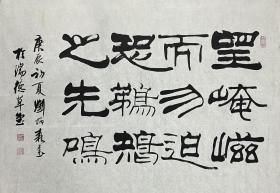 望崦嵫
而勿迫
恐鵜鴂
之先鳴
庚辰初夏劉炳森書
於德草堂